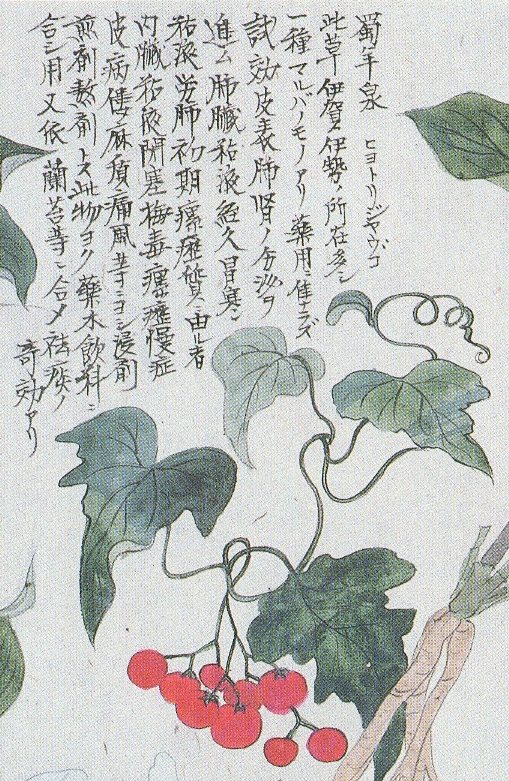 蜀羊泉 ヒヨトリジヤウゴ
此草伊賀伊勢ノ所在多シ
一種マルバノモノアリ 藥用ニ佳ナラズ
試効皮表肺腎ノ分泌ヲ
進ム肺臓粘液經久冒寒
粘液労肺初期瘰癧質ニ由ル者
内臓粘液閉塞梅毒瘰癧慢症
皮病僂麻質痛風等ニヨシ浸剤
煎剤散剤トス此物ヨク藥水飲料ニ
合シ用又依蘭苔等ニ合メ祛痰ノ
奇効アリ